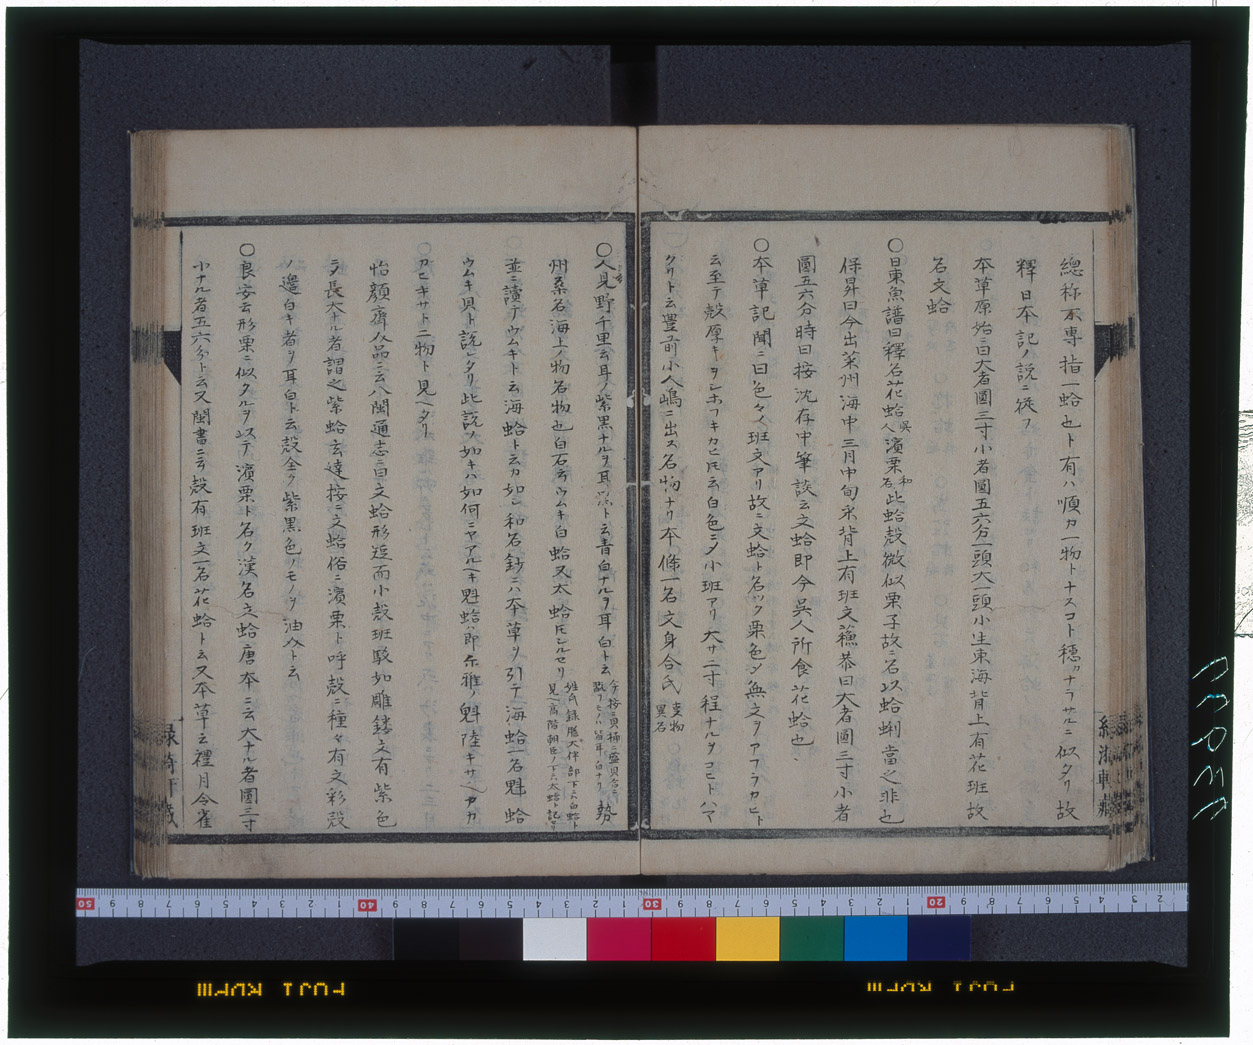 總称不專指一蛤也ト有ハ順カ一物トナスコト穏カナラサルニ似タリ故
釋日本記ノ説ニ従フ
本草原始ニ曰大者圍三寸小者圍五六分一頭大一頭小生東海背上有花班故
名文蛤
〇日東魚譜曰釋名花蛤呉人濱栗和名此蛤殻微似栗子故ニ名以蛤蜊當之非也
保昇曰今出莱州海中三月中旬采背上有班文蘓恭曰大者圍三寸小者
圍五六分時曰按沈存中筆談云文蛤即今呉人所食花蛤也
〇本草記聞ニ曰色々ノ班文アリ故ニ文蛤ト名ツク栗色ニ〆無文ヲアフラカヒト
云至テ殻厚キヲシホフキカヒ𪜈云白色ニ〆小班アリ大サ二寸程ナルヲコヒトハマ
クリト云豊前小人嶋ニ出ス名物ナリ本條一名文身合氏 支物異名
〇人見野千里云耳ノ紫黒ナルヲ耳クロト云青白ナルヲ耳白ト云 勢
州桑名海上ノ物名物也白石云ウムキ白蛤又太蛤𪜈シルセリ
並ニ讀テウムキト云海蛤ト云カ如シ和名鈔ニハ本草ヲ引テ海蛤一名魁蛤
ウムキ貝ト説シタリ此説ノ如キハ如何ニヤアルヘキ魁蛤ハ即尓雅ノ魁陸キサ又アカ
アヒキサト二物ト見ヘタリ
怡顔齋介品ニ云八閩通志ニ曰文蛤形逗而小殻班駁如雕鏤文有紫色
ヲ長大ナル者謂之紫蛤云達按ニ文蛤俗ニ濱栗ト呼殻ニ種々有文彩殻
ノ邉白キ者ヲ耳白ト云殻全ク紫黒色ノモノヲ油介ト云
〇良安云形栗ニ似タルヲ以テ濱栗ト名ク漢名文蛤唐本ニ云大ナル者圍三寸
小ナル者五六分ト云又閩書ニ云殻有班文一名花蛤ト云又本草云禮月令雀
50
40
30
20
FUJI RDPIII
FUJI RDPIII